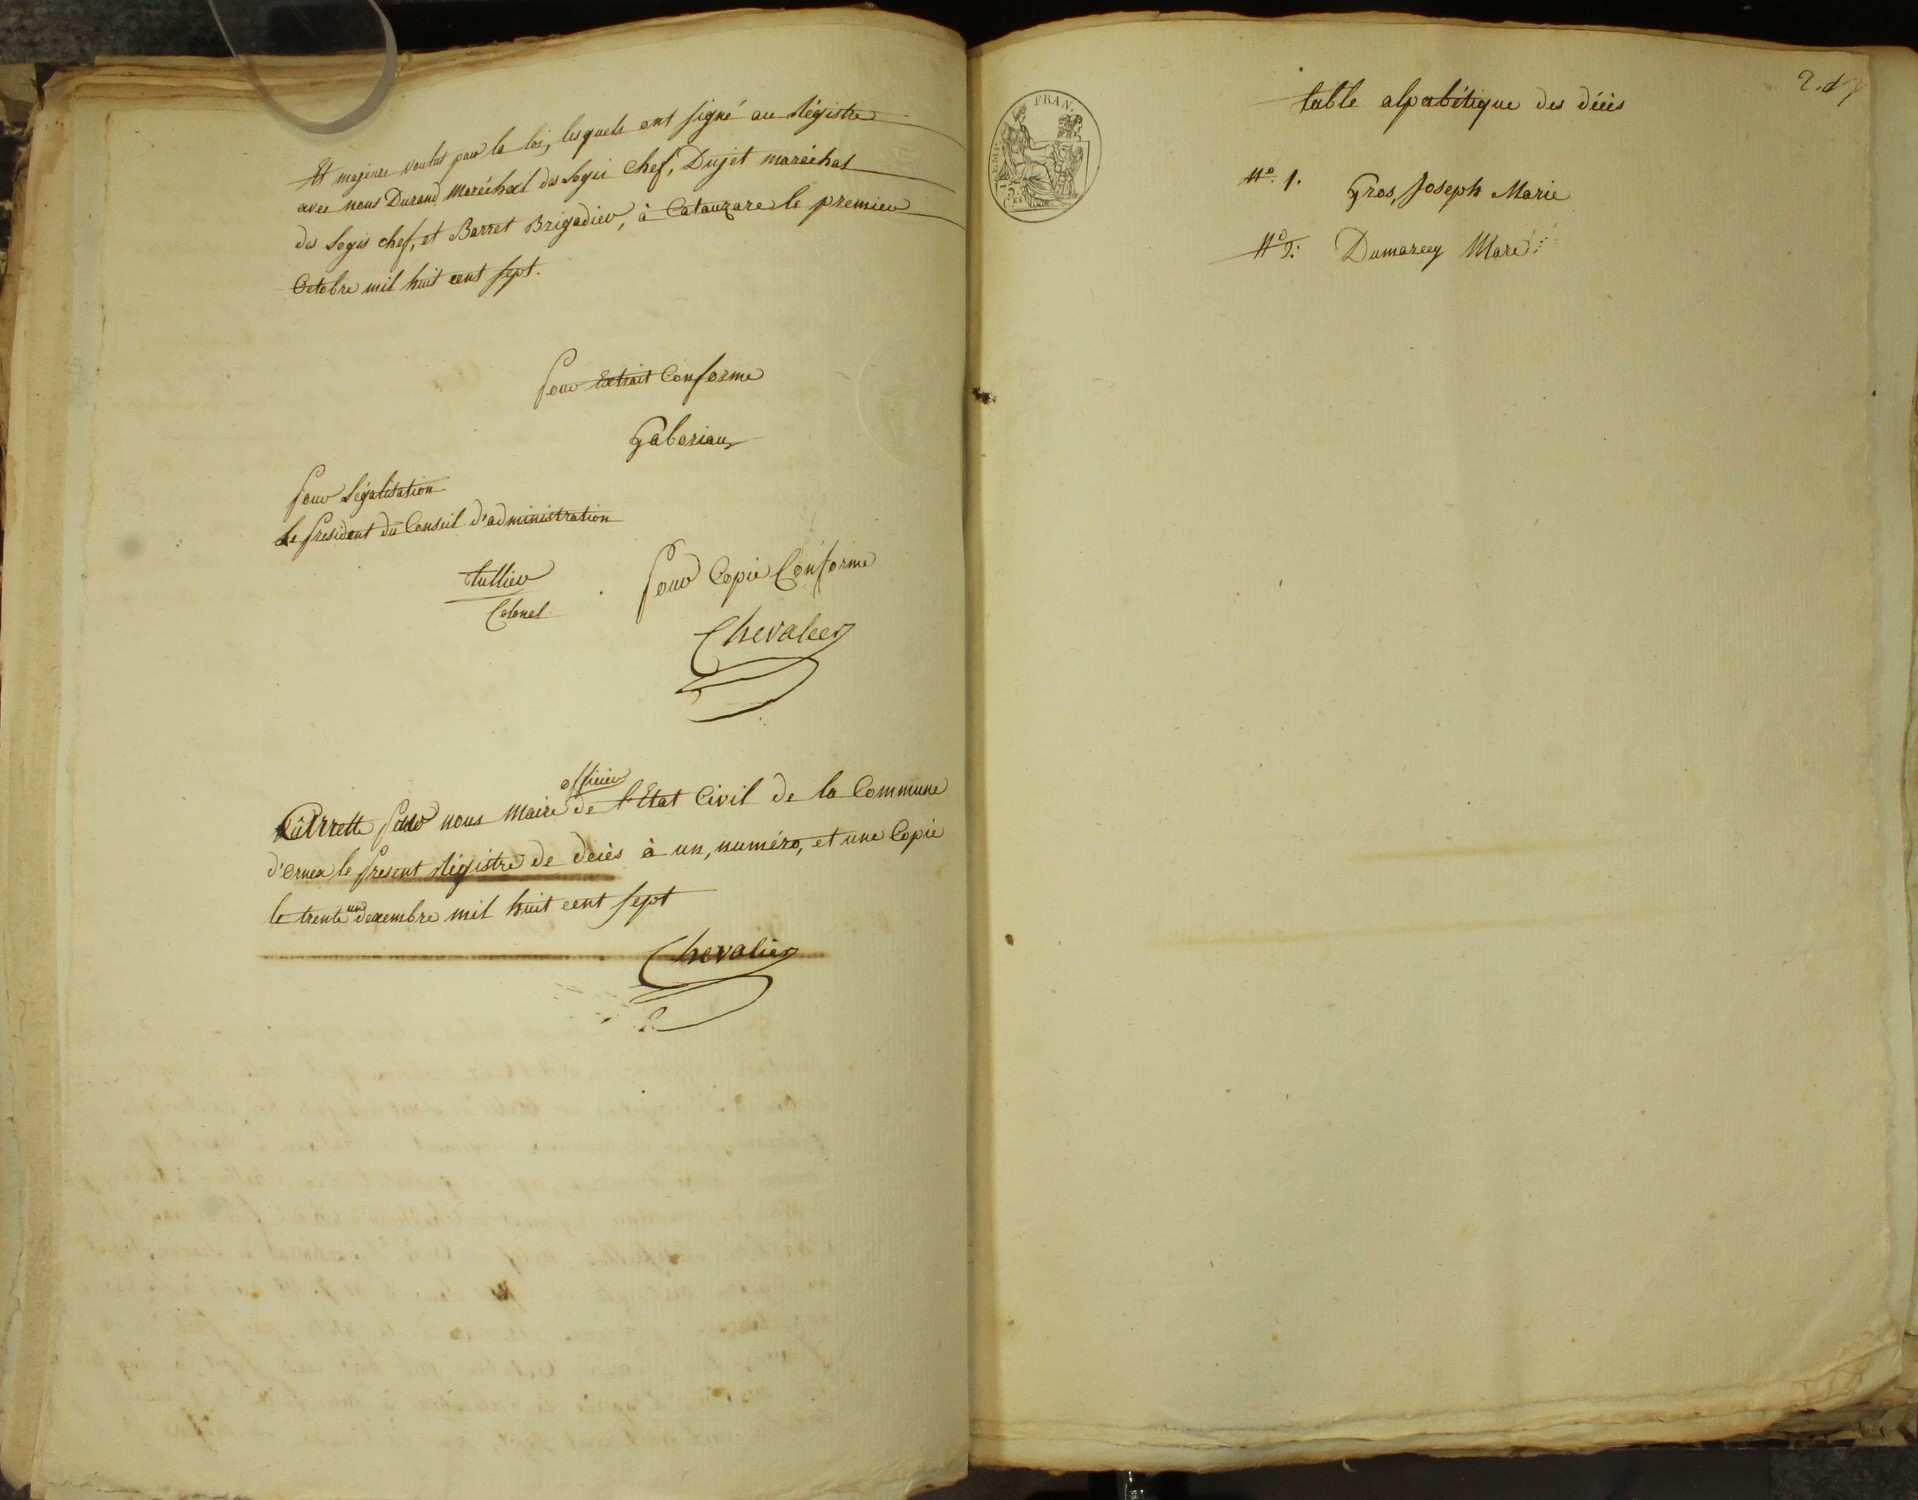 et majeure voulus par la loi, lesquels ont signé au Régistre
avec nous Durand Maréchal des Logis Chef, Dujet maréchal
des Logis chef, et Barret Brigadier, à Catanzare le premier
Octobre mil huit cent sept.
Pour Extrait Conforme
Gaboriau
Pour Légalisation
Le Président du Conseil d'administration
Colonel
Pour Copie Conforme
Chevalier
officier
arrette par nous Maire de l'Etat Civil de la Commune
le present Régistre de deiès à un, numéro, et une Copie
un
le trente decembre mil huit cent sept
Chevalier
table alpabétique des déiès
EMP. FRAN.
75
N.o 1. Gros, Joseph Marie
N.o 2. Dumarey Marc